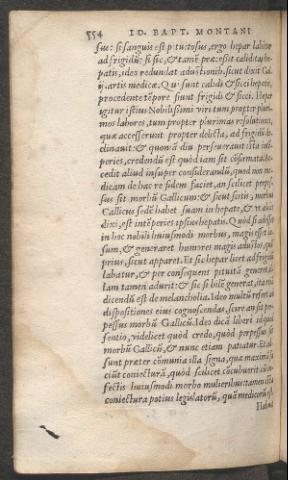 554 IO. BAPT. MONTANI
sue: si sanguis est pituitosus, ergo hepar labitur
ad frigidũ: si sic, & tamẽ præesset caliditas he-
patis, ideo redundat adustionib. sicut dixit Gal.
ij. artis medicæ. Qui sunt calidi & sicci hepatis,
procedente tẽpore fiunt frigidi & sicci. Hepar
igitur istius Nobilissimi viri tum propter pluri-
mos labores, tum propter plurimas resolutiones,
quæ accesserunt propter debita, ad frigidũ de-
clinauit: & quoniã diu perseuerant ista intẽ-
peries, credendũ est quòd iam sit cõfirmata. Ac-
cedit aliud insuper considerandũ, quod non me-
dicam de hac re fidem faciet, an scilicet perpes-
sus sit morbũ Gallicum: & sicut scitis, morbus
Gallicus sedẽ habet suam in hepate, & vt alias
dixi, est intẽperies ipsius hepatis. Quòd si adesset
in hoc nobili huiusmodi morbus, magis esset læ-
sum, & generaret humores magis adustos, quã
prius, sicut apparet. Et sic hepar licet ad frigidũ
labatur, & per consequens pituitã generet, il-
lam tamen adurit: & sic si bilẽ generat, itatamẽ
dicendũ est de melancholia. Ideo multũ refert ad
dispositiones eius cognoscendas, scire an sit per-
pessus morbũ Gallicũ. Ideo dicã liberè id quod
sentio, videlicet quòd credo, quòd perpessus sit
morbũ Gallicũ, & nunc etiam patiatur. Et ad-
sunt præter cõmunia illa signa, quæ maximè fa-
ciũt coniecturã, quòd scilicet cõcubuerit cũ in-
fectis huiusmodi morbo mulieribus: tamen ista
coniectura potius legislatorũ, quã medicorũ est.
Habui